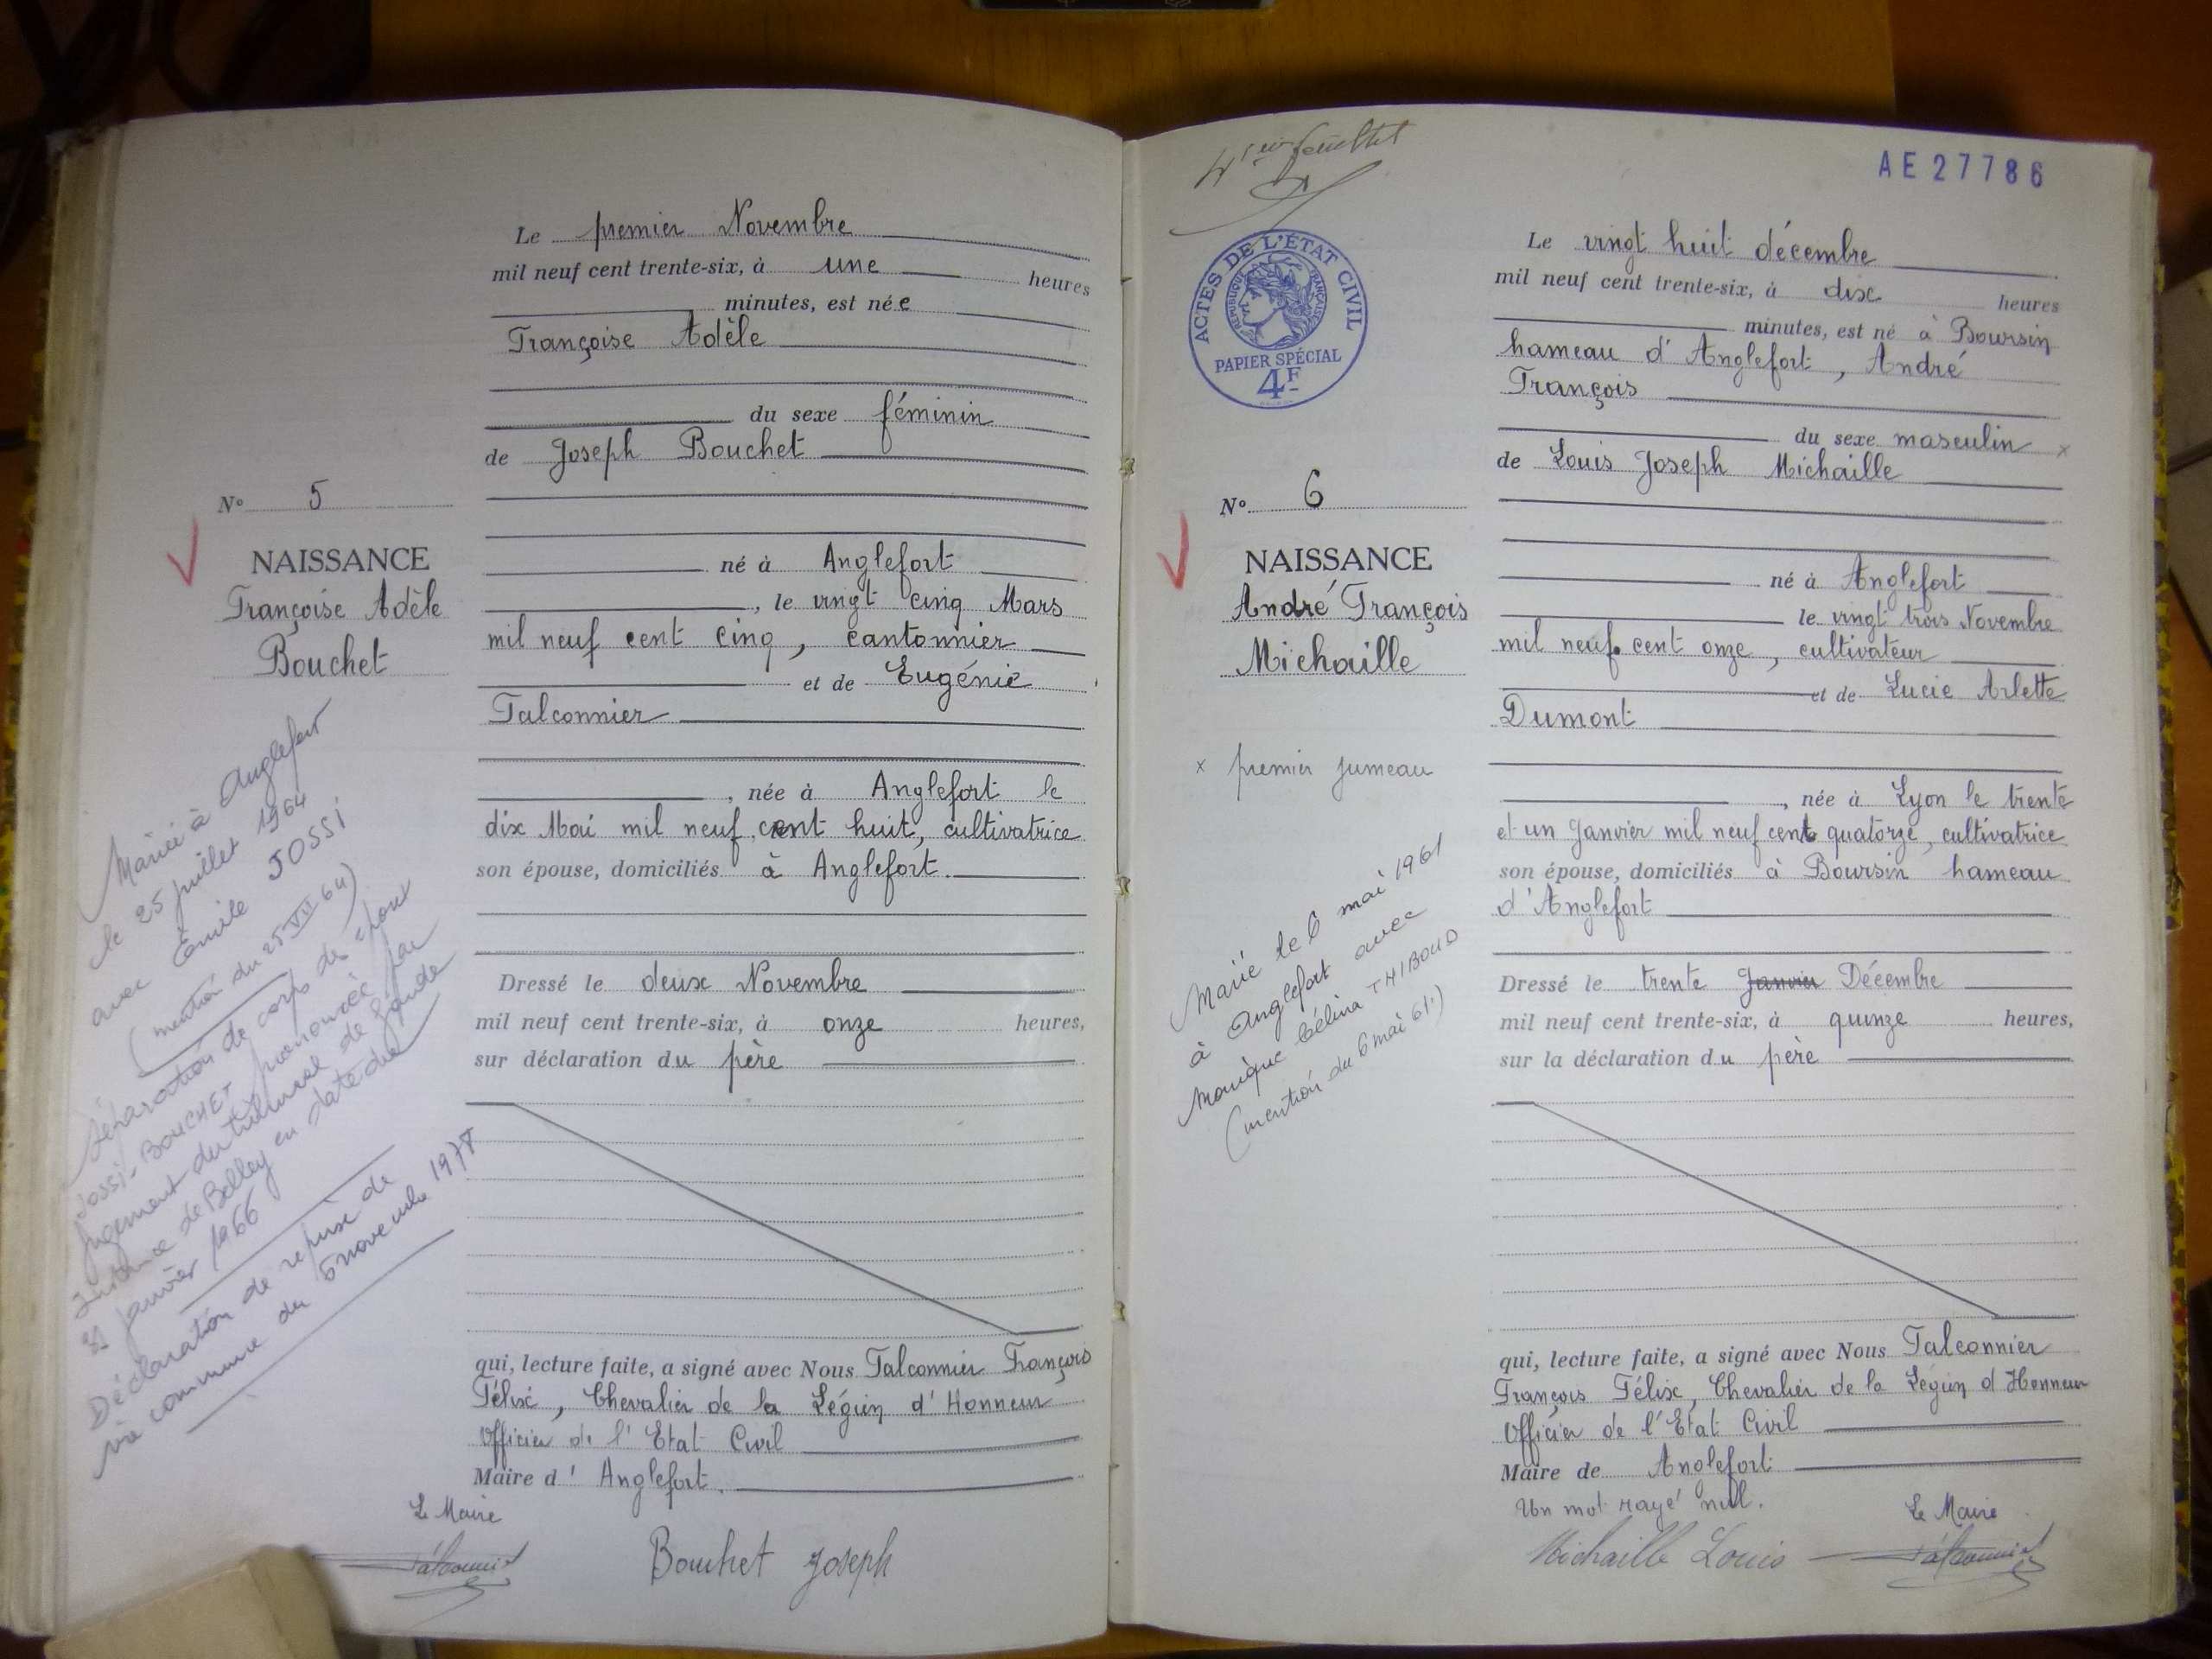 Le premier Novembre
mil neuf cent trente-six, à une heures
minutes, est née
Françoise Adèle
du sexe féminin
de Joseph Bouchet
N° 5
NAISSANCE
Françoise Adèle
Bouchet
né à Anglefort
, le vingt cinq Mars
mil neuf cent cinq, cantonnier
et de Eugénie
Falconnier
, née à Anglefort le
dix Mai mil neuf cent huit, cultivatrice
son épouse, domiciliés à Anglefort.
Mariée à Anglefort
le 25 juillet 1964
avec Émile JOSSI
(mention du 25 VII 64)
Séparation de corps des époux
Jossi-BOUCHET prononcée par
jugement du tribunal de grande
Instance de Belley en date du
janvier 1966
Déclaration de reprise de
vie commune du 5 novembre 197
Dressé le deux Novembre
mil neuf cent trente-six, à onze heures,
sur déclaration du père
qui, lecture faite, a signé avec Nous Falconnier François
Félix, Chevalier de la Légion d'Honneur
Officier de l'Etat Civil
Maire d' Anglefort.
Le Maire
Falconnier
Bouchet Joseph
feuillet
AE27786
ACTES DE L'ÉTAT CIVIL
RÉPUBLIQUE FRANÇAISE
PAPIER SPÉCIAL
4F
Le vingt huit décembre
mil neuf cent trente-six, à dix heures
minutes, est né à Boursin
hameau d'Anglefort, André
François
du sexe masculin x
de Louis Joseph Michaille
N° 6
NAISSANCE
André François
Michaille
né à Anglefort
le vingt trois Novembre
mil neuf cent onze, cultivateur
et de Lucie Arlette
Dumont
x premier jumeau
, née à Lyon le trente
et un Janvier mil neuf cent quatorze, cultivatrice
son épouse, domiciliés à Boursin hameau
d'Anglefort
Marié le 6 mai 1961
à Anglefort avec
Monique Célina THIBOUD
(mention du 6 mai 61.)
Dressé le trente Janvier Décembre
mil neuf cent trente-six, à quinze heures,
sur la déclaration du père
qui, lecture faite, a signé avec Nous Falconnier
François Félix, Chevalier de la Légion d'Honneur
Officier de l'Etat Civil
Maire de Anglefort
Un mot rayé nul.
Le Maire
Michaille Louis
Falconnier